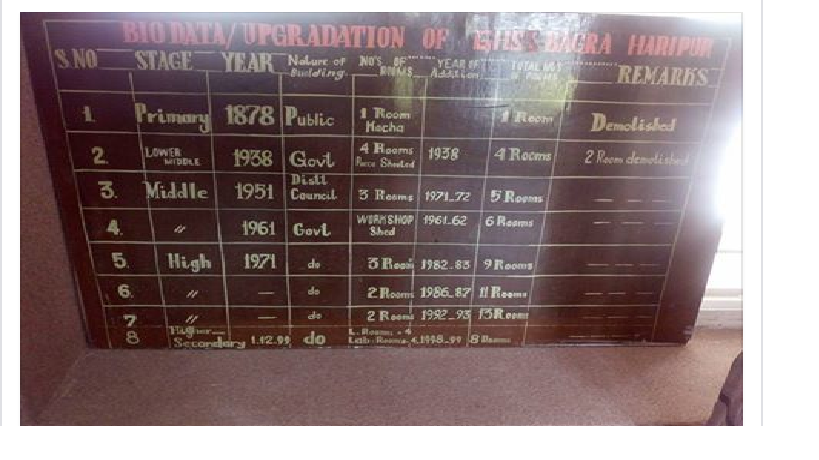 BIO DATA/UPGRADATION OF GHSS BAGRA HARIPUR
S.NO STAGE YEAR Nature of Building NO'S OF ROOMS YEAR OF Addition TOTAL NO'S REMARKS
1 Primary 1878 Public 1 Room Kacha 1 Room Demolished
2. LOWER MIDDLE 1938 Govt 4 Rooms Sheeted 1938 4 Rooms 2 Room demolished
3. Middle 1951 Distt Council 3 Rooms 1971_72 5 Rooms — — —
4. 〃 1961 Govt WORKSHOP Shed 1961-62 6 Rooms — — —
5. High 1971 do 3 Room 1982-83 9 Rooms — — —
6. 〃 — do 2 Rooms 1986-87 11 Rooms — — —
7 〃 — do 2 Rooms 1992_93 13 Rooms — — —
8 Higher Secondary 1.12.99 do Lab-Rooms 1998-99 8 Rooms